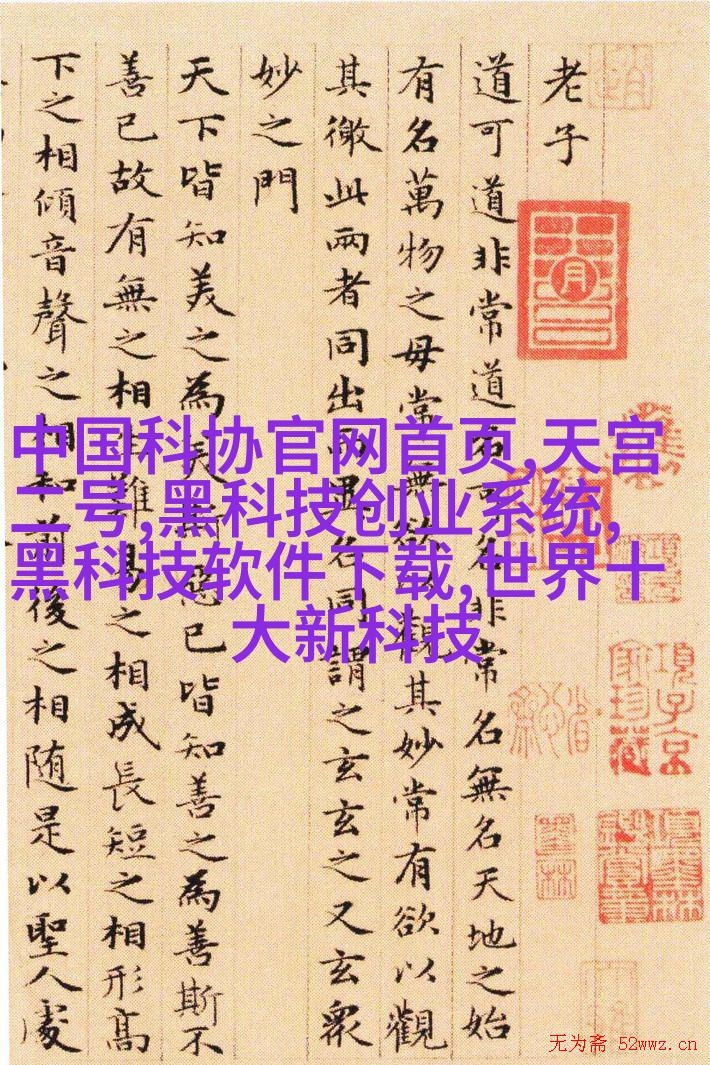 老子
道可道非常道名可名非常名無名天地之始
有名萬物之母常無欲以觀其妙常有欲以觀
其徼此兩者同出而異名同謂之玄玄之又玄衆
妙之門
天下皆知美之為美斯惡已皆知善之為善斯不
善已故有無之相生難易之相成長短之相形高
下之相傾音聲之相和前後之相随是以聖人處
中国科协官网首页,天宫
二号,黑科技创业系统,
黑科技软件下载,世界十
大新科技
項子京
家珍藏
无为斋 52wwz.cn